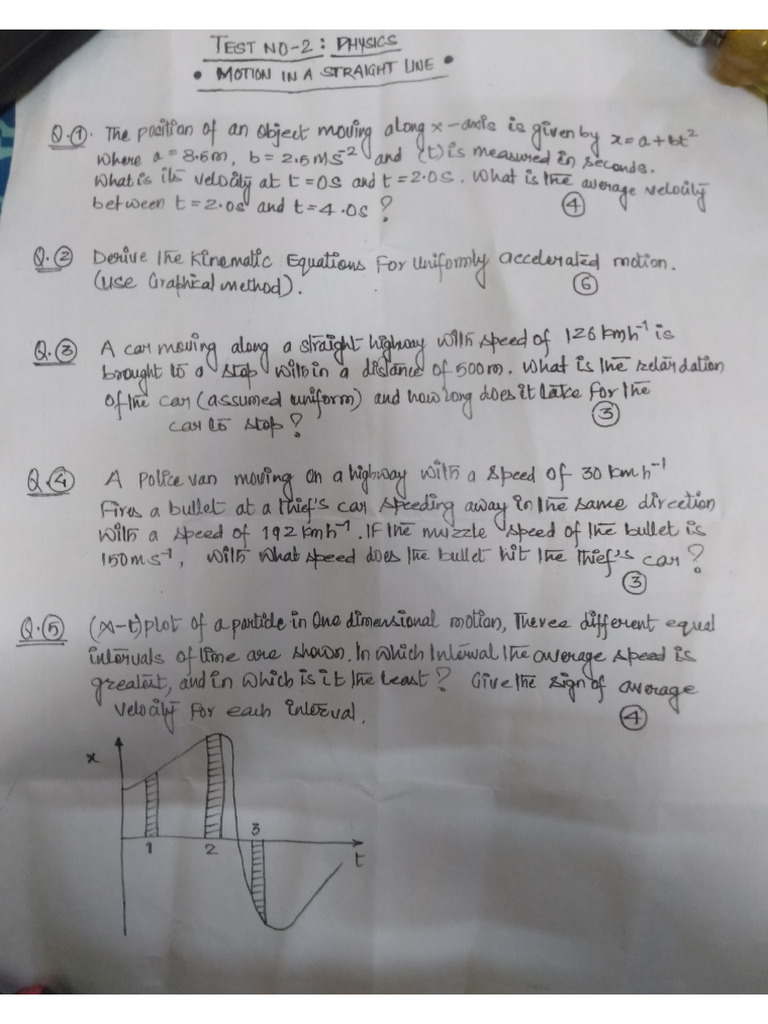 TEST NO-2: PHYSICS
• MOTION IN A STRAIGHT LINE •
Q.①. The position of an object moving along x-axis is given by x=a+bt²
where a = 8.5m, b = 2.5ms⁻² and (t) is measured in seconds.
What is its velocity at t=0s and t=2.0s. What is the average velocity
between t=2.0s and t=4.0s?
④
Q.② Derive the Kinematic Equations For Uniformly accelerated motion.
(use Graphical method).
⑥
Q.③ A car moving along a straight highway with speed of 126 kmh⁻¹ is
brought to a stop within a distance of 500m. What is the retardation
of the car (assumed uniform) and how long does it take for the
car to stop?
③
Q.④ A Police van moving on a highway with a speed of 30 kmh⁻¹
Fires a bullet at a thief's car speeding away in the same direction
with a speed of 192 kmh⁻¹. If the muzzle speed of the bullet is
150ms⁻¹, with what speed does the bullet hit the thief's car?
③
Q.⑤ (x-t) plot of a particle in One dimensional motion, Three different equal
intervals of time are shown. In which Interval the average speed is
greatest, and in which is it the Least? Give the sign of average
velocity for each interval.
④
x
3
1 2
t